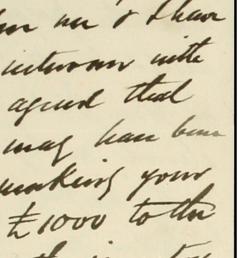 me & I have
interview with
agreed that
may have been
making your
£1000 to the